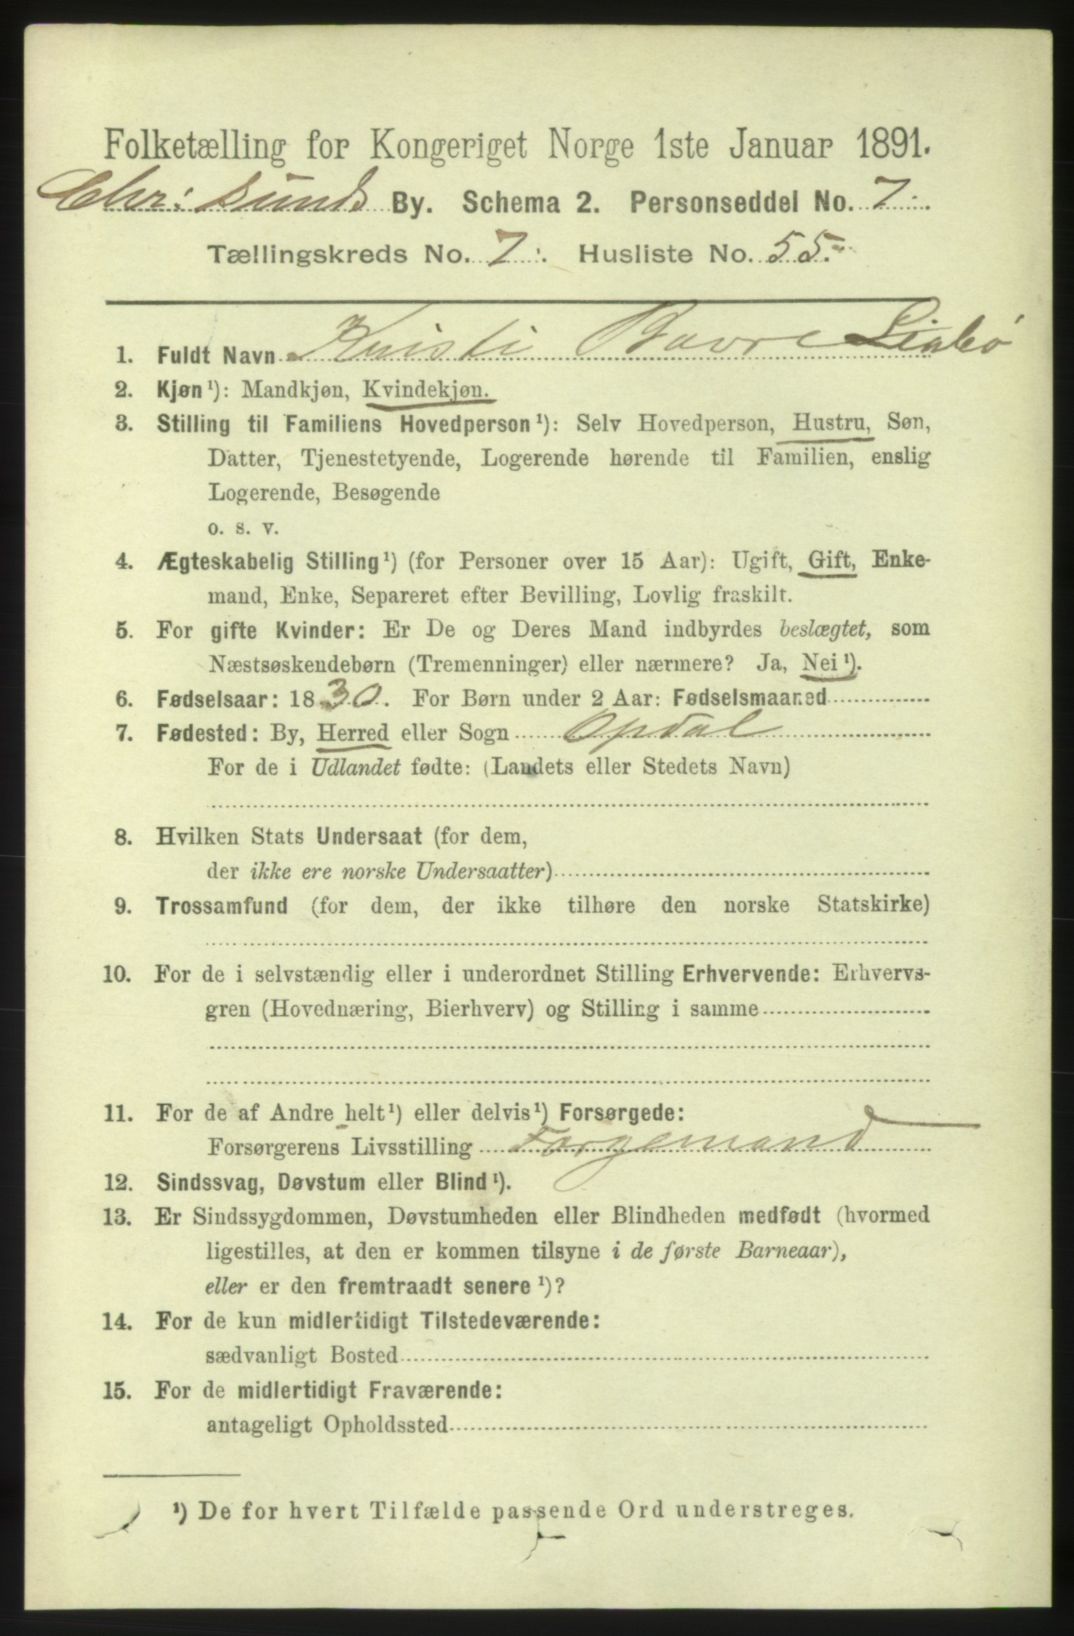 Folketælling for Kongeriget Norge 1ste Januar 1891.
Chr: sunds By. Schema 2. Personseddel No. 7.
Tællingskreds No. 7. Husliste No. 55.
1. Fuldt Navn Kristi Bavre Liabø
2. Kjøn ¹): Mandkjøn, Kvindekjøn.
3. Stilling til Familiens Hovedperson ¹): Selv Hovedperson, Hustru, Søn,
Datter, Tjenestetyende, Logerende hørende til Familien, enslig
Logerende, Besøgende
o. s. v.
4. Ægteskabelig Stilling ¹) (for Personer over 15 Aar): Ugift, Gift, Enke-
mand, Enke, Separeret efter Bevilling, Lovlig fraskilt.
5. For gifte Kvinder: Er De og Deres Mand indbyrdes beslægtet, som
Næstsøskendebørn (Tremenninger) eller nærmere? Ja, Nei ¹).
6. Fødselsaar: 1830. For Børn under 2 Aar: Fødselsmaaned
7. Fødested: By, Herred eller Sogn Opdal
For de i Udlandet fødte: (Landets eller Stedets Navn)
8. Hvilken Stats Undersaat (for dem,
der ikke ere norske Undersaatter)
9. Trossamfund (for dem, der ikke tilhøre den norske Statskirke)
10. For de i selvstændig eller i underordnet Stilling Erhvervende: Erhvervs-
gren (Hovednæring, Bierhverv) og Stilling i samme
11. For de af Andre helt ¹) eller delvis ¹) Forsørgede:
Forsørgerens Livsstilling Færgemand
12. Sindssvag, Døvstum eller Blind ¹).
13. Er Sindssygdommen, Døvstumheden eller Blindheden medfødt (hvormed
ligestilles, at den er kommen tilsyne i de første Barneaar),
eller er den fremtraadt senere ¹)?
14. For de kun midlertidigt Tilstedeværende:
sædvanligt Bosted
15. For de midlertidigt Fraværende:
antageligt Opholdssted
¹) De for hvert Tilfælde passende Ord understreges.